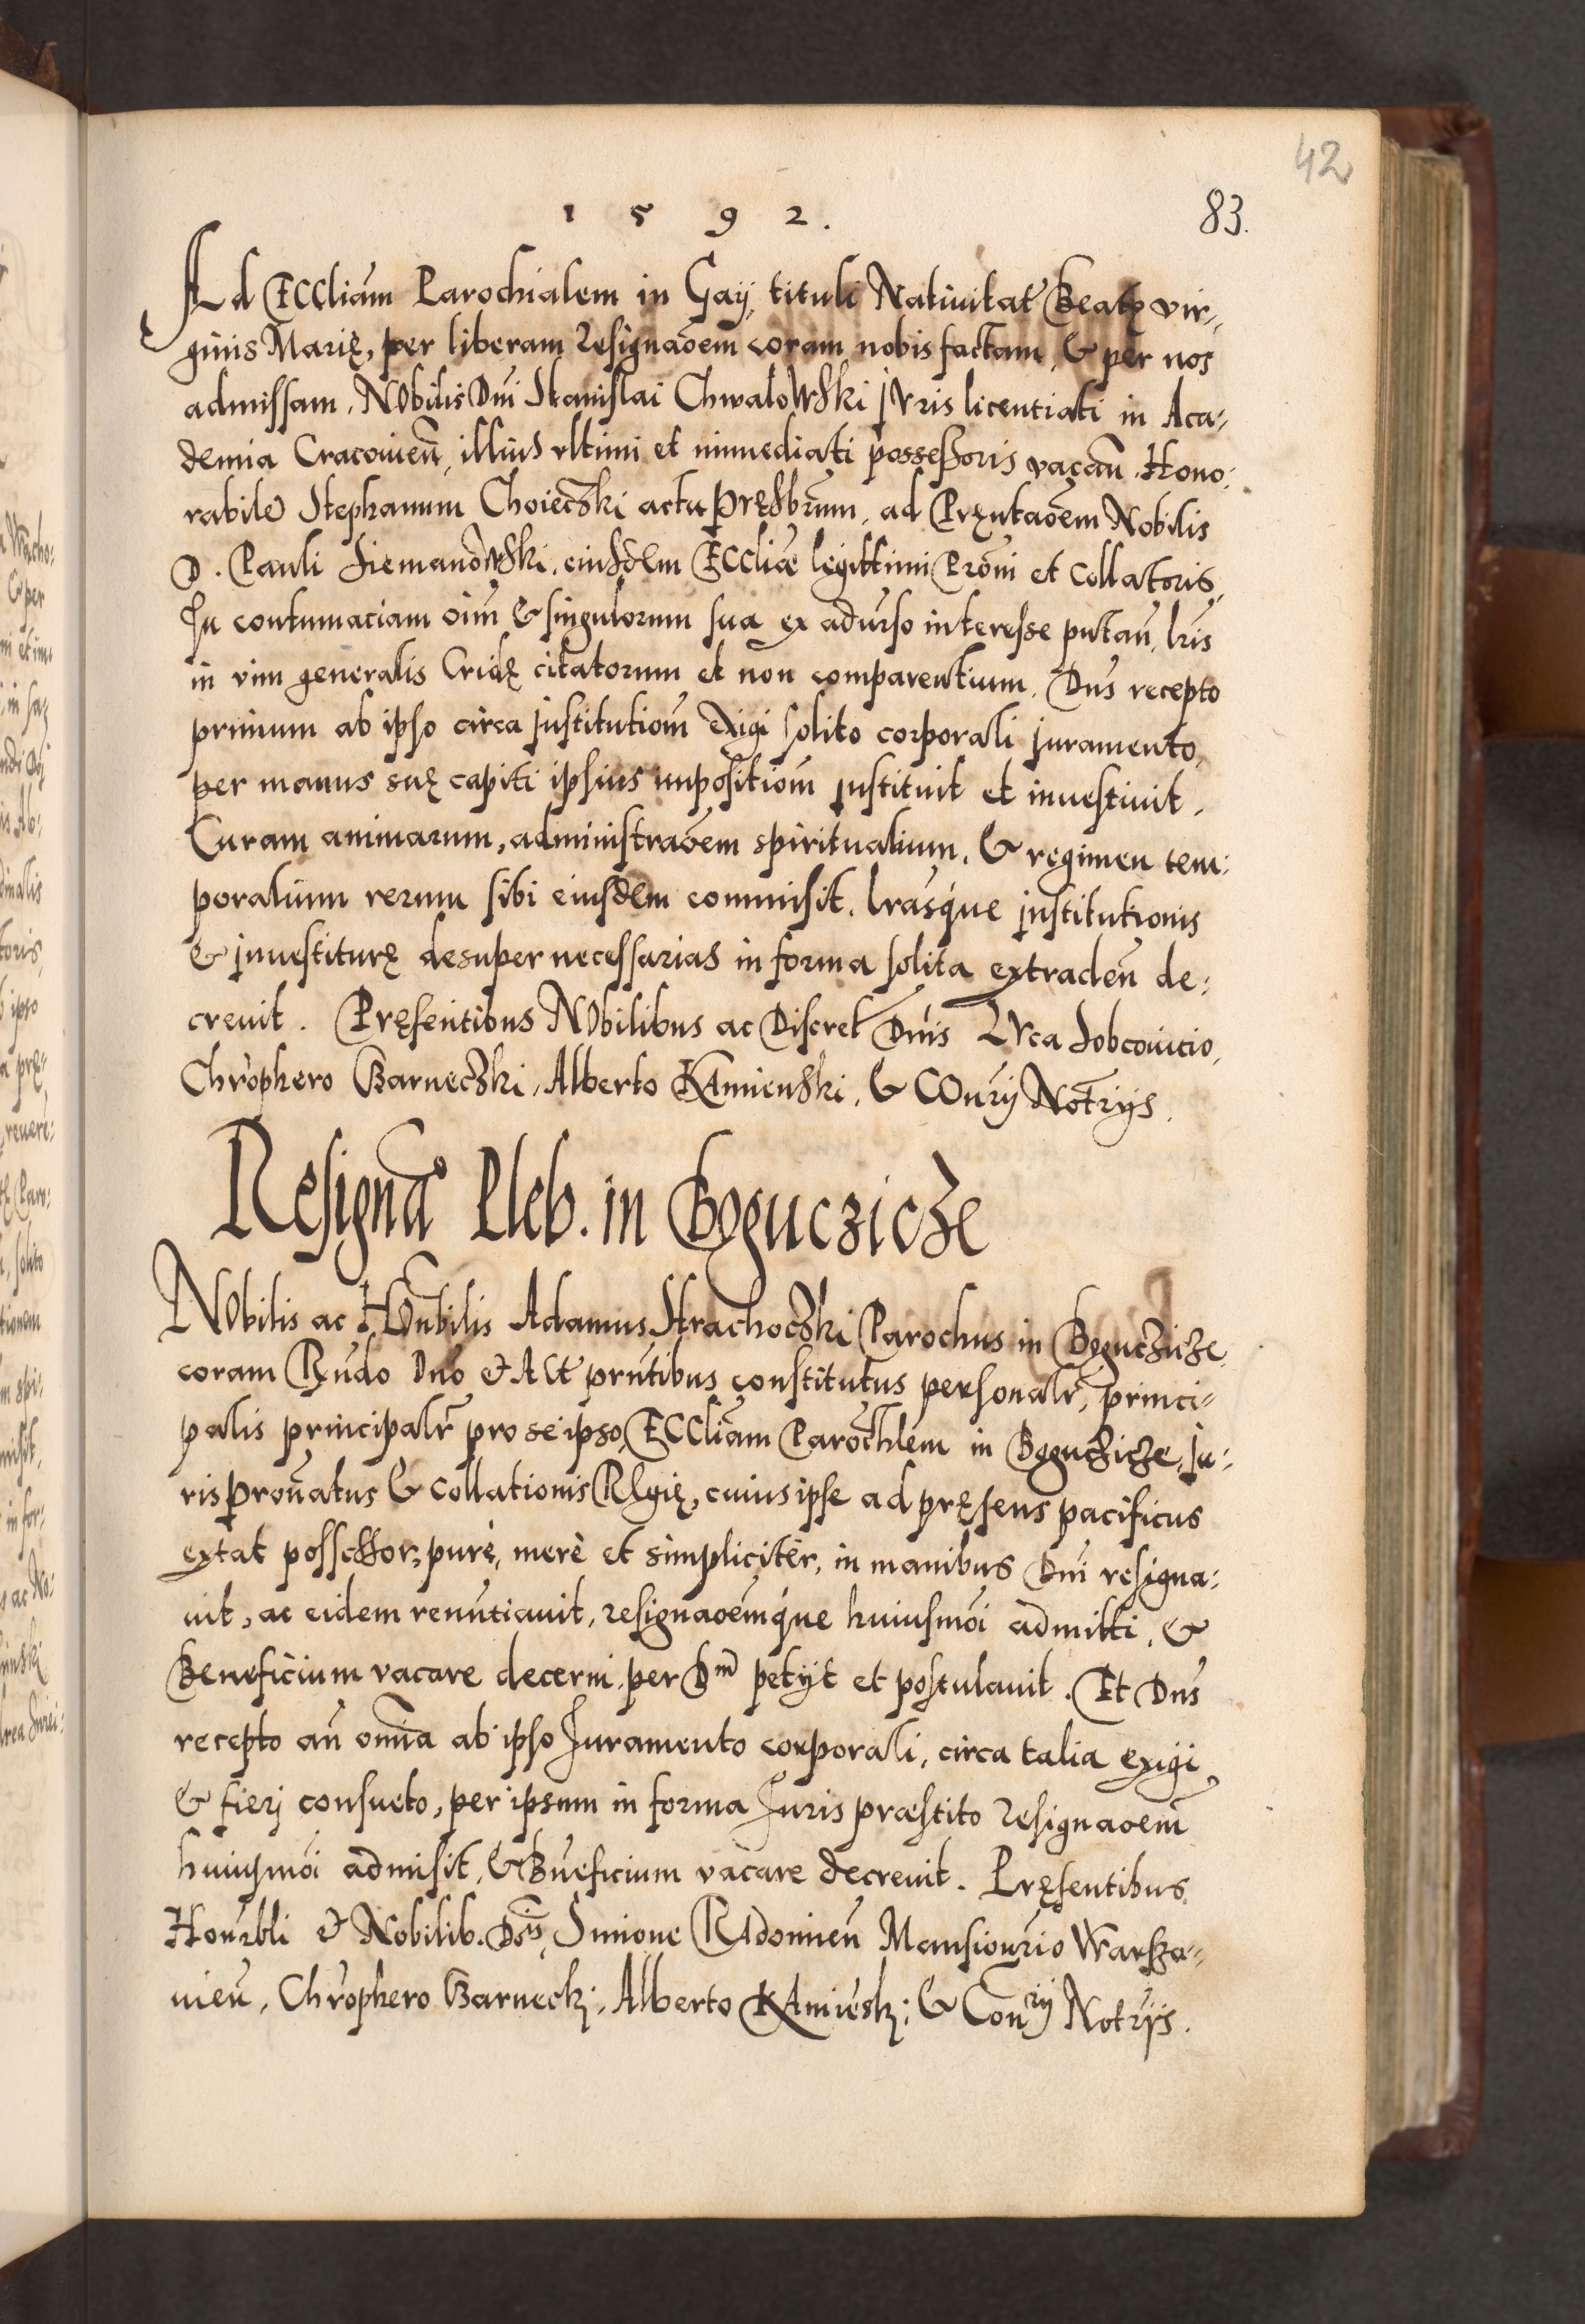 42
1592.
83.
Ad ECCliam̄ Parochialem in Gay, tituli Natiuitat Beatę vir-
ginis Marię, per liberam Resignaōem coram nobis factam, & per nos
admissam, NObilis Dni Stanislai ChwaloWski JVris licentiati in Aca-
demia Cracouien̄, illius vltimi et immediati possessoris vacan̄. Hono-
rabile Stephanum Choieczki actu pręsbrum, ad Pręntaōem Nobilis
D. Pauli SiemanoWski, eiusdem ECCliæ legittimi Prōni et Collatoris,
In contumaciam oim̄ & singulorum sua ex aduerso interesse putan̄, lris
in vim generalis Cridę citatorum et non comparentium, Dns recepto
primum ab ipso circa institutiom̄ exigi solito corporali iuramento,
per manus suę capiti ipsius impositiom̄ instituit et inuestiuit,
Curam animarum, administraōem spiritualium, & regimen tem-
poralium rerum sibi eiusdem commisit, lrasque institutionis
& inuestiturę desuper necessarias in forma solita extraden̄ de-
creuit. Pręsentibus NObilibus ac Discret Dnis LVca Dobcouicio,
Chrōphero Barneczki, Alberto KAmienski, & COnrij Notrijs.
Resignāo Pleb. in Boguczicze
NObilis ac HOnbilis Adamus Strachoczki Parochus in Boguczicze
coram Rndo Dno & ACt pn̄tibus constitutus personalr, princi-
palis principalr pro se ipso, ECCliam Parochlem in Boguczicze, Iu-
ris pronatus & collationis REgię, cuius ipse ad pręsens pacificus
extat possessor, purè, merè et simpliciter, in manibus Dni resigna-
uit, ac eidem renuntiauit, resignaoemque huiusmōi admitti, &
Beneficium vacare decerni per Dm petijt et postulauit. Et Dns
recepto an̄ omnia ab ipso Iuramento corporali, circa talia exigi
& fieri consueto, per ipsum in forma Iuris præstito Resignaoem
huiusmōi admisit, & Bneficium vacare decreuit. Pręsentibus
Honrbli & Nobilib. Dnis, Simone RAdomien̄ Mansionrio Warsza-
uien̄, Chrōphero Barnecki, Alberto KAmieski, & Conrij Notrijs.